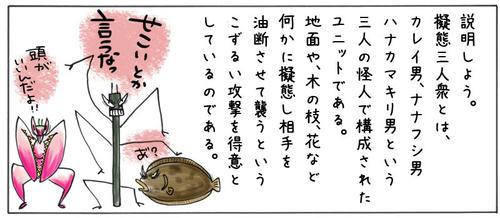 説明しよう。
擬態三人衆とは、
カレイ男、ナナフシ男
ハナカマキリ男という
三人の怪人で構成された
ユニットである。
地面や、木の枝、花など
何かに擬態し相手を
油断させて襲うという
こずるい攻撃を得意と
しているのである。
せこいとか
言うなっ
頭が
いいんだよ!!
あ?